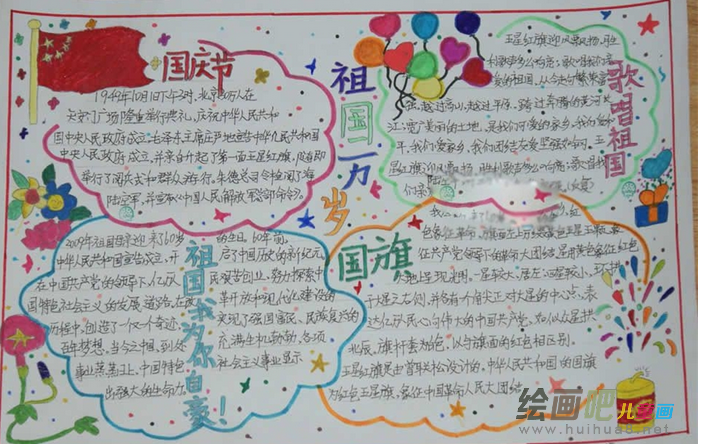 国庆节
1949年10月1日下午3时,北京30万人在
天安门广场隆重举行典礼,庆祝中华人民共和
国中央人民政府成立。毛泽东主席庄严地宣告中华人民共和国
中央人民政府成立,并亲自升起了第一面五星红旗,随即
举行了阅兵式和群众游行,朱德总司令检阅了海
陆空军,并宣布《中国人民解放军总部命令》。
祖国万岁
歌唱祖国
五星红旗迎风飘扬,胜
利歌声多么响亮;歌唱我们亲
爱的祖国,从今走向繁荣富
强。越过高山,越过平原,跨过奔腾的黄河长
江;宽广美丽的土地,是我们可爱的家乡,我们爱和
平,我们爱家乡,我们团结友爱坚强如钢。五
星红旗迎风飘扬,胜利歌声多么响亮;歌唱我
祖国我为你自豪!
2009年祖国母亲迎来了60岁的生日。60年前,
中华人民共和国宣告成立,开启了中国历史的新纪元。
在中国共产党的领导下,亿万民艰苦创业,努力探索中
国特色社会主义的发展道路,在改革开放和现代化建设的
历程中,创造了一个又一个奇迹,实现了强国富民、民族复兴的
百年梦想。当今之中国,到处充满生机勃勃,各项
事业蒸蒸日上,中国特色社会主义事业显示
出强大的生命力
国旗
象征革命,旗面左上方
征共产党领导下的革命大团结,星用黄色象征红色
大地上呈现光明,一星较大,居左,四星较小,环拱
于大星之右侧,并各有一个角尖正对大星的中心点,表
达亿万人民心向伟大的中国共产党,如似众星拱
北辰,旗杆套为白色,以与旗面的红色相区别。
五星红旗是由曾联松设计的,中华人民共和国的国旗
为红色五星旗,象征中国革命人民大团结
绘画吧
儿童画
www.huihua8.net